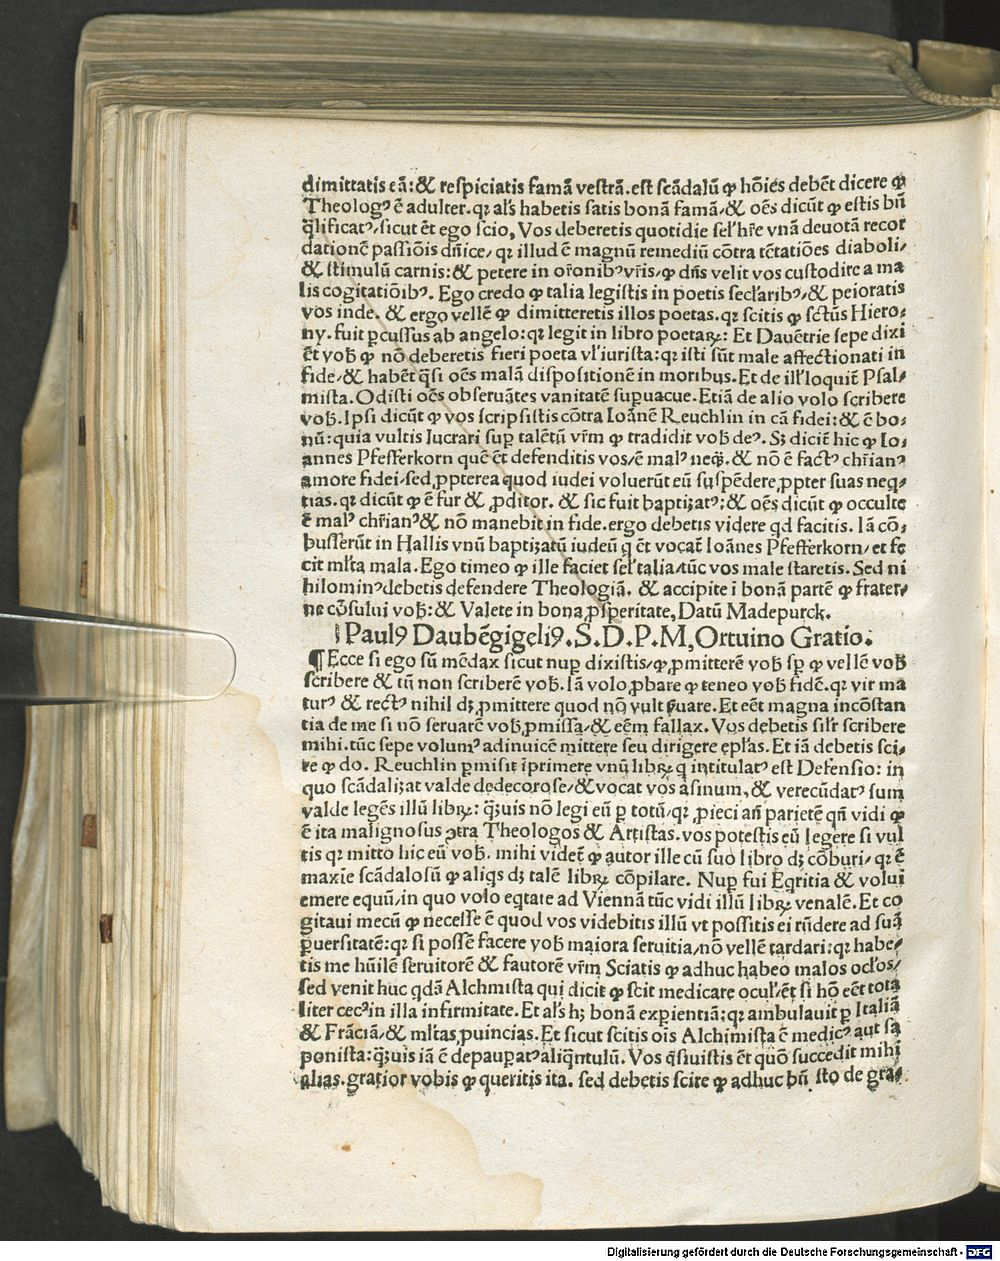 dimittatis eã: & respiciatis famã vestrã. est scãdalũ ꝙ hões debẽt dicere ꝙ
Theologꝰ ẽ adulter. qꝛ als habetis satis bonã famã/ & oẽs dicũt ꝙ estis bñ
q̃lificatꝰ/ sicut ẽt ego scio, Vos deberetis quotidie sel hr̃e vnã deuotã recor
dationẽ passiõis dñice/ qꝛ illud ẽ magnũ remediũ cõtra tẽtatiões diaboli/
& stimulũ carnis: & petere in or̃onibꝰ vr̃is/ ꝙ dñs velit vos custodire a ma
lis cogitatiõibꝰ. Ego credo ꝙ talia legistis in poetis seclaribꝰ/ & peioratis
vos inde. & ergo vellẽ ꝙ dimitteretis illos poetas. qꝛ scitis ꝙ sctũs Hiero-
ny. fuit ꝑcussus ab angelo: qꝛ legit in libro poetaꝝ: Et Dauẽtrie sepe dixi
ẽt vob̃ ꝙ nõ deberetis fieri poeta vl iurista: qꝛ isti sũt male affectionati in
fide/ & habẽt q̃si oẽs malã dispositionẽ in moribus. Et de ill loquit̃ Psal-
mista. Odisti oẽs obseruãtes vanitatẽ suꝑuacue. Etiã de alio volo scribere
vob̃. Ipsi dicũt ꝙ vos scripsistis cõtra Ioãnẽ Reuchlin in cã fidei: & ẽ bo-
nũ: quia vultis lucrari suꝑ talẽtũ vr̃m ꝙ tradidit vob̃ deꝰ. Sꝫ dicit̃ hic ꝙ Io-
annes Pfefferkorn quẽ ẽt defenditis vos/ ẽ malꝰ neq̃. & nõ ẽ factꝰ chr̃ianꝰ
amore fidei/ sed ꝓpterea quod iudei voluerũt eũ suspẽdere ꝓpter suas neq-
tias. qꝛ dicũt ꝙ ẽ fur & ꝓditor. & sic fuit baptiꝫatꝰ: & oẽs dicũt ꝙ occulte
ẽ malꝰ chr̃ianꝰ & nõ manebit in fide. ergo debetis videre qd facitis. Iã cõ-
busserũt in Hallis vnũ baptiꝫatũ iudeũ q̃ ẽt vocat̃ Ioãnes Pfefferkorn/ et fe
cit ml̃ta mala. Ego timeo ꝙ ille faciet sel talia/ tũc vos male staretis. Sed ni
hilominꝰ debetis defendere Theologiã. & accipite i bonã partẽ ꝙ frater-
ne cõsului vob̃: & Valete in bona ꝓsperitate, Datũ Madepurck.
Paulꝰ Daubẽgigelꝰ. S. D. P. M, Ortuino Gratio.
¶ Ecce si ego sũ mẽdax sicut nuꝑ dixistis/ ꝙ ꝓmitterẽ vob̃ sꝑ ꝙ vellẽ vob̃
scribere & tñ non scriberẽ vob̃. Iã volo ꝓbare ꝙ teneo vob̃ fidẽ. qꝛ vir ma
turꝰ & rectꝰ nihil dꝫ ꝓmittere quod nõ vult ẽuare. Et eẽt magna incõstan
tia de me si nõ seruarẽ vob̃ ꝓmissa/ & eẽm fallax. Vos debetis silr̃ scribere
mihi. tũc sepe volumꝰ adinuicẽ mittere seu dirigere epl̃as. Et iã debetis sci-
re ꝙ do. Reuchlin ꝑmisit ĩprimere vnũ libꝝ q̃ intitulatꝰ est Defensio: in
quo scãdaliꝫat valde dedecorose/ & vocat vos asinum, & verecũdatꝰ sum
valde legẽs illũ libꝝ: q̃uis nõ legi eũ ꝑ totũ/ qꝛ ꝓieci añ parietẽ qñ vidi ꝙ
ẽ ita malignosus ꝯtra Theologos & Artistas. vos potestis eũ legere si vul
tis qꝛ mitto hic eũ vob̃. mihi videt̃ ꝙ autor ille cũ suo libro dꝫ cõburi/ qꝛ ẽ
maxie scãdalosũ ꝙ aliqs dꝫ talẽ libꝝ cõpilare. Nuꝑ fui Eqritia & volui
emere equũ/ in quo volo eqtate ad Viennã tũc vidi illũ libꝝ venalẽ. Et co
gitaui mecũ ꝙ necesse ẽ quod vos videbitis illũ vt possitis ei rñdere ad suã
ꝑuersitatẽ: qꝛ si possẽ facere vob̃ maiora seruitia/ nõ vellẽ tardari: qꝛ habe-
tis me hũilẽ seruitorẽ & fautorẽ vr̃m Sciatis ꝙ adhuc habeo malos oclos/
sed venit huc qdã Alchmista qui dicit ꝙ scit medicare ocul/ ẽt si hõ eẽt tota
liter cecꝰ in illa infirmitate. Et als hꝫ bonã exꝑientiã: qꝛ ambulauit ꝑ Italiã
& Frãciã/ & ml̃tas ꝓuincias. Et sicut scitis ois Alchimista ẽ medicꝰ aut sa
ponista: q̃uis iã ẽ depauꝑatꝰ aliq̃ntulũ. Vos q̃siuistis ẽt quõ succedit mihi
alias. gratior vobis ꝙ queritis ita. sed debetis scire ꝙ adhuc bñ sto de gra-
Digitalisierung gefördert durch die Deutsche Forschungsgemeinschaft - DFG